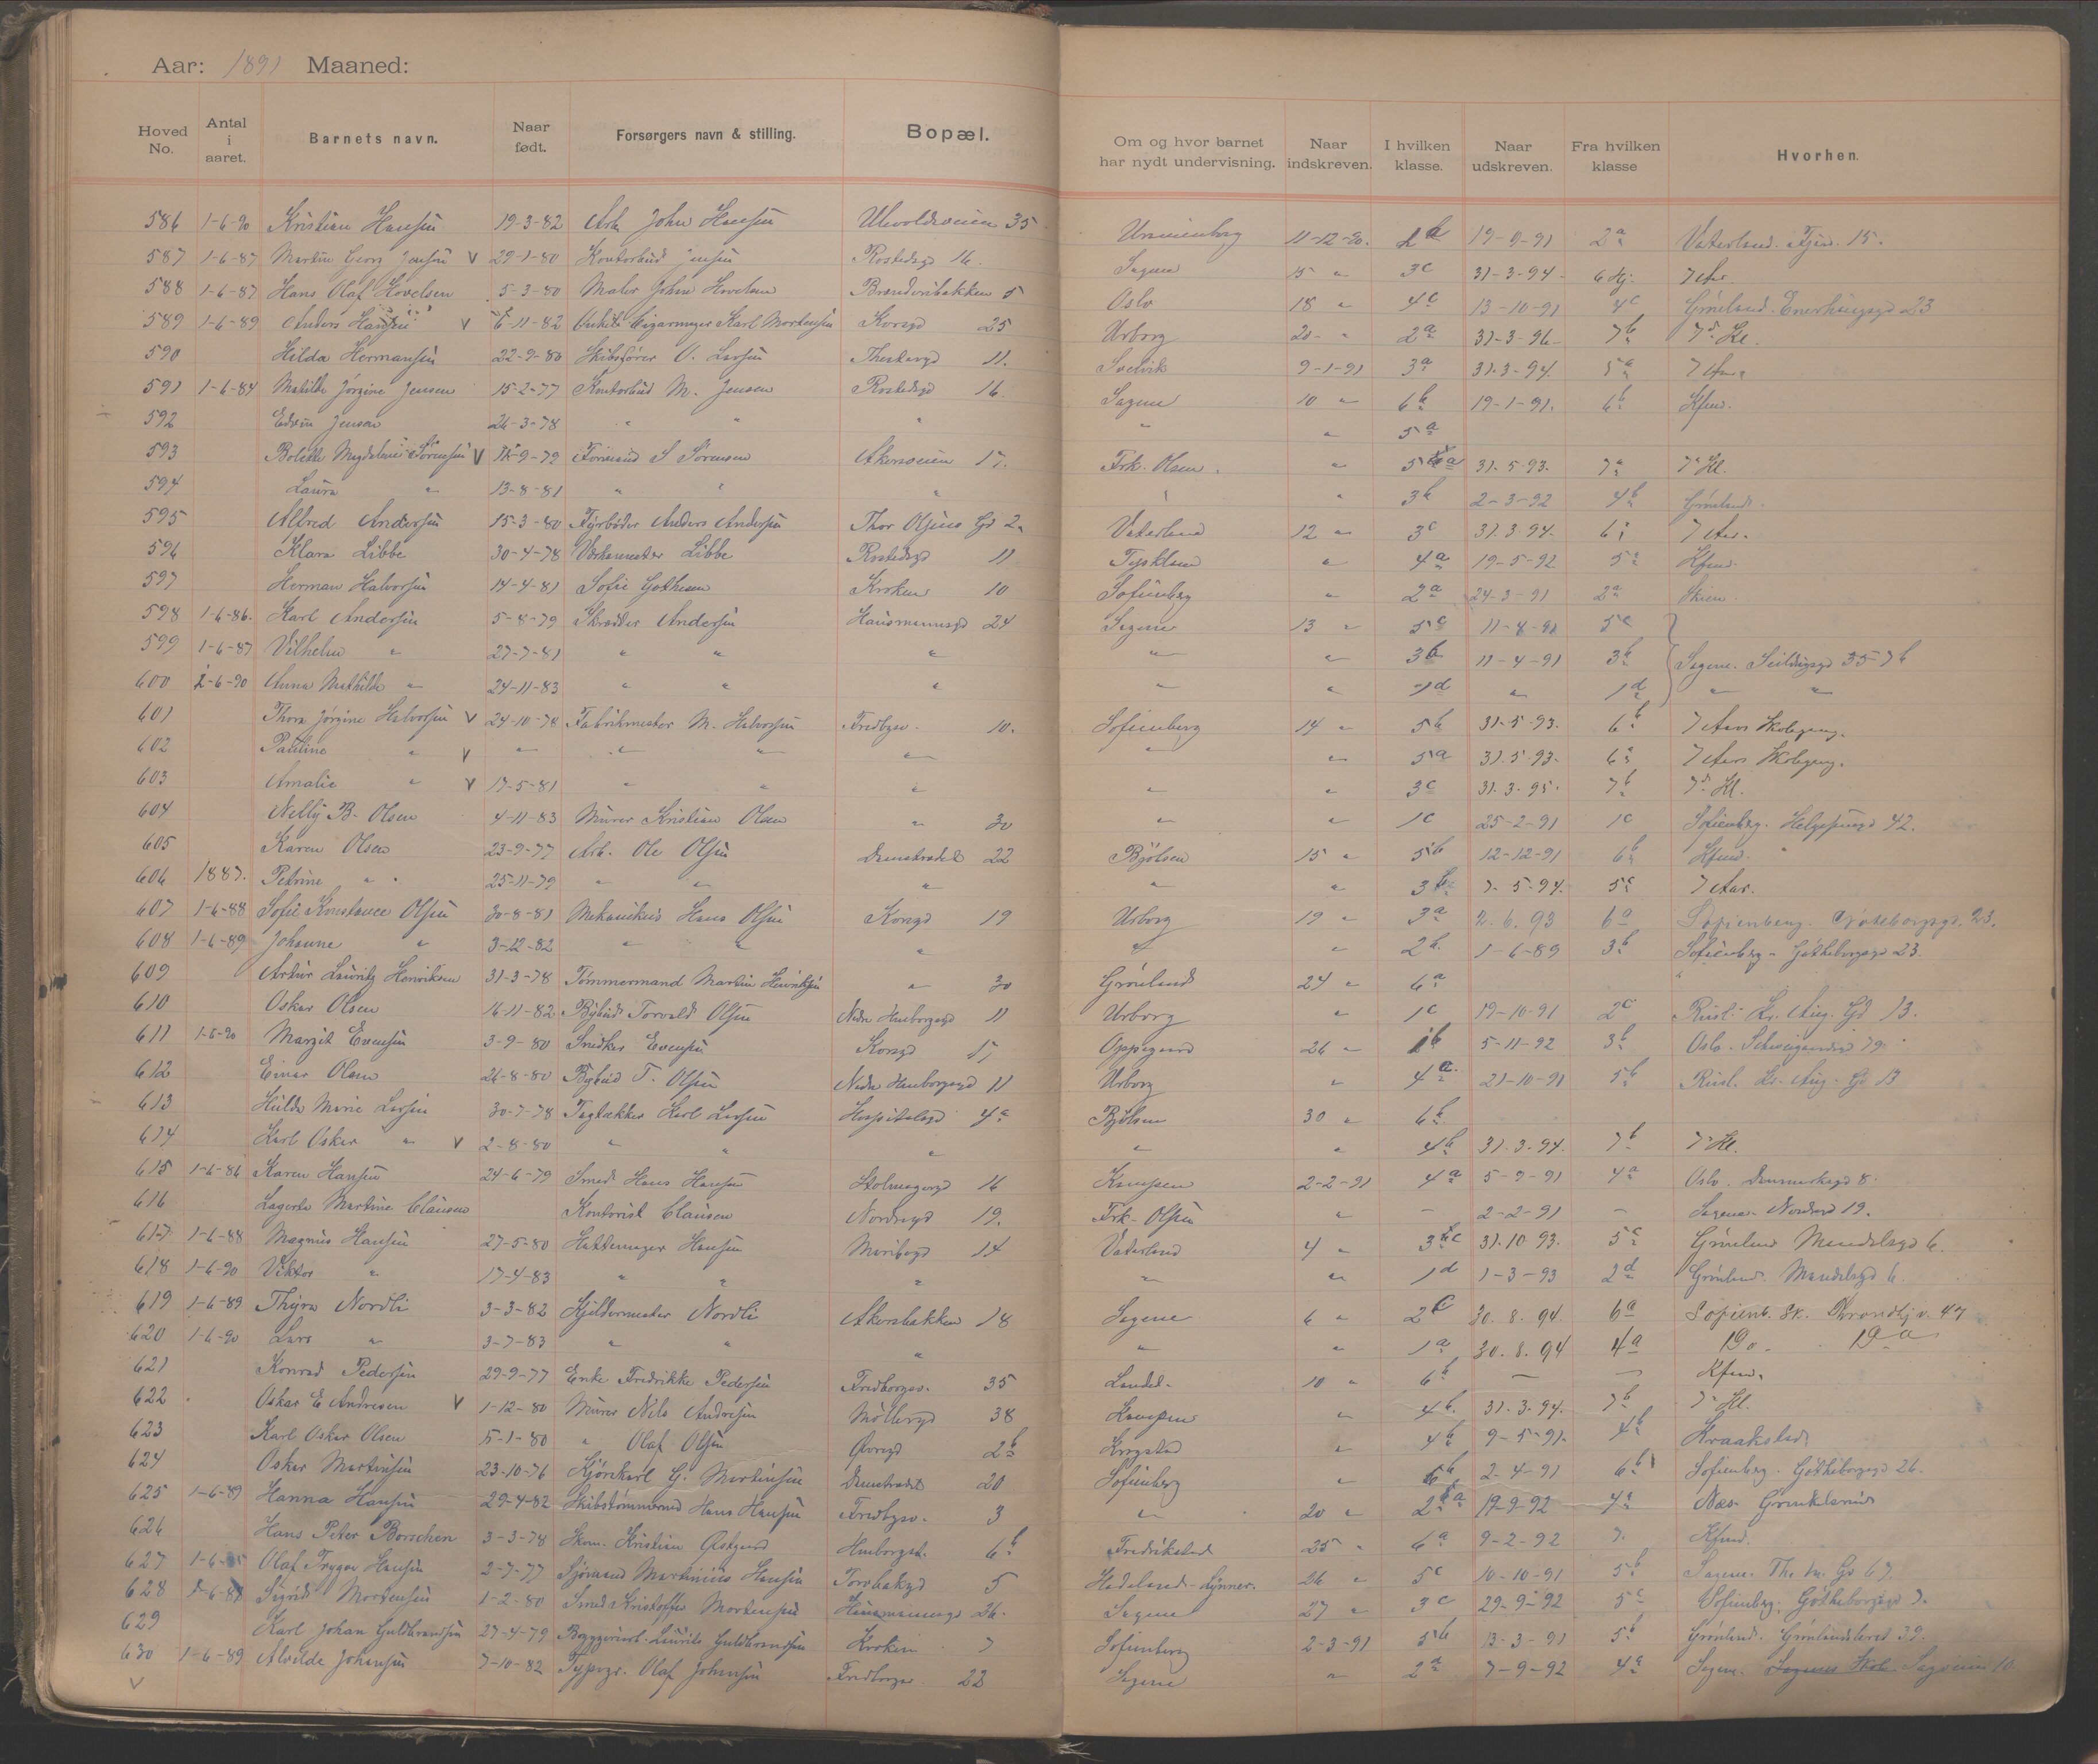 Aar: 1891 Maaned:
Hoved No. Antal i aaret. Barnets navn. Naar født. Forsørgers navn & stilling. Bopæl. Om og hvor barnet har nydt undervisning. Naar indskreven. I hvilken klasse. Naar udskreven. Fra hvilken klasse Hvorhen.
586 1-6-90 Kristian Hansen 19-3-82 Arb. John Hansen Ullevoldsveien 35 Uranienborg 11-12-90. 19-9-91 2a Vaterland. 15.
587 1-6-87 Martin Georg Jensen V 29-1-80 Kontorbud Jensen Rostedsgd 16. Sagene 15 " 3c 31-3-94. 7 Aar.
588 1-6-87 Hans Olaf Hovelsen 5-3-80 Maler Johan Hovelsen 5 Oslo 18 " 4c 13-10-91 4c Grönland. Enerhaugsgd 23
589 1-6-89 Anders Hansen V 6-11-82 Karl Mortensen Korsgd 25 Urborg 20 " 2a 31-3-96. 7b 7d Kl.
590 Hilda Hermansen 22-9-80 Skibsfører O. Larsen Thestergd 11. Svelvik 9-1-91 3a 31-3-94. 5a 7 Aar
591 1-6-84 Matilde Jörgine Jensen 15-2-77 Kontorbud M. Jensen Rostedsgd 16. Sagene 10 " 6b 19-1-91. 6b Kfmd.
592 Edvin Jensen 26-3-78 " " " " " 5a
593 Bolette Magdalene Sörensen V -9-79 Formand S Sörensen Akersveien 17. Frk. Olsen. " 5a 31-5-93. 7a 7d Kl.
594 Laura " 13-8-81 " " " " " 3b 2-3-92 4b Grönland.
595 Alfred Andersen 15-3-80 Fyrbøder Anders Andersen Thor Olsens Gd 2a Vaterland 12 " 3c 31-3-94. 7 Aar.
596 Klara Libbe 30-4-78 Værkmester Libbe Rostedsgd 11 Tyskland " 4a 19-5-92 5a Kfmd.
597 Herman Halvorsen 14-4-81 Sofie Kroken 10 Sofienberg " 2a 24-3-91 2a Skien.
598 1-6-86. Karl Andersen 5-8-79 Skrædder Andersen Hausmannsgd 24 Sagene 13 " 5c 11-4-91 5c
599 1-6-87 Vilhelm " 27-7-81 " " " " " 3b 11-4-91 3b Sagene. 35-7b
600 1-6-90 Anna Mathilde " 24-11-83 " " " " " 1d " 1d " "
601 Thora Jörgine Halvorsen V 24-10-78 Fabrikmester M. Halvorsen Fredbgsv. 10. Sofienberg 14 " 5b 31-5-93. 6b 7 Aars Skolegang.
602 Pauline " V " " " " " " 5a 31-5-93. 6a 7 Aars Skolegang.
603 Amalie " V 17-5-81 " " " " " 3c 31-3-95. 7b 7d Kl.
604 Nelly B. Olsen 4-11-83 Murer Kristian Olsen " 30 " " 1c 25-2-91 1c Sofienberg. Helgesensgd 42.
605 Karen Olsen 23-9-77 Arb. Ole Olsen Damstrædet 22 Bjölsen 15 " 5b 12-12-91 6b Kfmd.
606 1887. Petrine " 25-11-79 " " " " " 3b 7-5-94. 5c 7 Aar.
607 1-6-88 Sofie Konstance Olsen 30-8-81 Mekanikus Hans Olsen Korsgd 19 Urborg 19 " 3a 2.6.93 6a Sofienberg. Göteborgsgd. 23.
608 1-6-89 Johanne " 3-12-82 " " " " " 2b 1-6-89 3b Sofienberg. Götheborgsgd 23.
609 Artur Lauritz Henriksen 31-3-78 Tömmermand Martin Henriksen " 30 Grönland 24 " 6a
610 Oskar Olsen 16-11-82 Bybud Torvald Olsen Nedre Hamborgsgd 11 Urborg " 1c 19-10-91 2c Rusl. Kr. Aug. Gd 13.
611 1-6-90 Margit Evensen 3-9-80 Snedker Evensen Korsgd 17 Oppegaard 26 " 5-11-92 3b Oslo. Schweigaardsgd 79.
612 Einar Olsen 26-8-80 Bybud T. Olsen Nedre Hamborgsgd 11 Urborg " 4a. 21-10-91 5b Rusl. Kr. Aug. Gd 13
613 Hulda Marie Larsen 30-7-78 Tagtækker Karl Larsen Hospitalsgd 4a Bjölsen 30 " 6b
614 Karl Oskar " V 2-8-80 " " " " " 4b 31-3-94. 7b 7d Kl.
615 1-6-86 Karen Hansen 24-6-79 Smed Hans Hansen Stolmagergd 16 Kampen 2-2-91 4a 5-9-91 4a Oslo. Danmarksgd 8.
616 Lagerta Martine Clausen Kontorist Clausen Nordregd 19. Frk. Olsen " – 2-2-91 – Sagene. Nordregd 19.
617 1-6-88 Magnus Hansen 27-5-80 Hattemager Hansen Maribogd 14 Vaterland 4 " 3c 31.10.93. 5c Grönland Mandalsgd 6.
618 1-6-90 Viktor " 17-4-83 " " " " " 1d 1-3-93 2d Grönland. Mandalsgd 6.
619 1-6-89 Thyra Nordli 3-3-82 Kjeldermester Nordli Akersbakken 18 Sagene 6 " 2c 30.8.94. 6a Sofienb. Sk. Trondhj.v. 47
620 1-6-90 Lars " 3-7-83 " " " " " 1a 30.8.94 4a Do. Do
621 Konrad Pedersen 29-9-77 Enke Fredrikke Pedersen Fredborgsv. 35 Landet. 10 " 6b – – Kfmd.
622 Oskar E Andresen V 1-12-80 Murer Nils Andresen Möllergd 38 Kampen " 4b. 31-3-94. 7b 7d Kl.
623 Karl Oskar Olsen 5-1-80 " Olaf Olsen Øvregd 2b Krogstad " 4b 9-5-91. 4b Kraakstad.
624 Oskar Martinsen 23-10-76 Kjörekarl G. Martinsen Damstrædet 20 Sofienberg " 6b 2-4-91 6b Sofienberg. Götheborgsgd 26.
625 1-6-89 Hanna Hansen 29-4-82 Skibstömmermd Hans Hansen Fredbgsv. 3 " 20 " 2a 19-9-92 4a Næs
626 Hans Peter Borschen 3-3-78 Skom. Kristian Östgaard 6b Fredrikstad 25 " 6a 9-2-92 7. Kfmd.
627 Olaf Trygve Hansen 2-7-77 Sjömand Martinius Hansen Torvbakgd 5 Hadeland. Lunner. 26 " 5c 10-10-91 5b Sagene. Th. M. Gd 67.
628 Sigrid Mortensen 1-2-80 Smed Kristoffer Mortensen Hausmannsgd 26. Sagene 27 " 3c 29-9-92 5c Sofienberg. Götheborgsgd 7.
629 Karl Johan Guldbrandsen 27-4-79 Lauritz Guldbrandsen Kroken 7 Sofienberg 2-3-91 5b 13-3-91 5b Grönland. Grönlandsleret 39.
630 1-6-89 Alvilde Johansen 7-10-82 Typogr. Olaf Johansen Fredborgsv. 22 Sagene " 2a 7-9-92 4a Sagene. Sagene Skole Sagveien 10
V